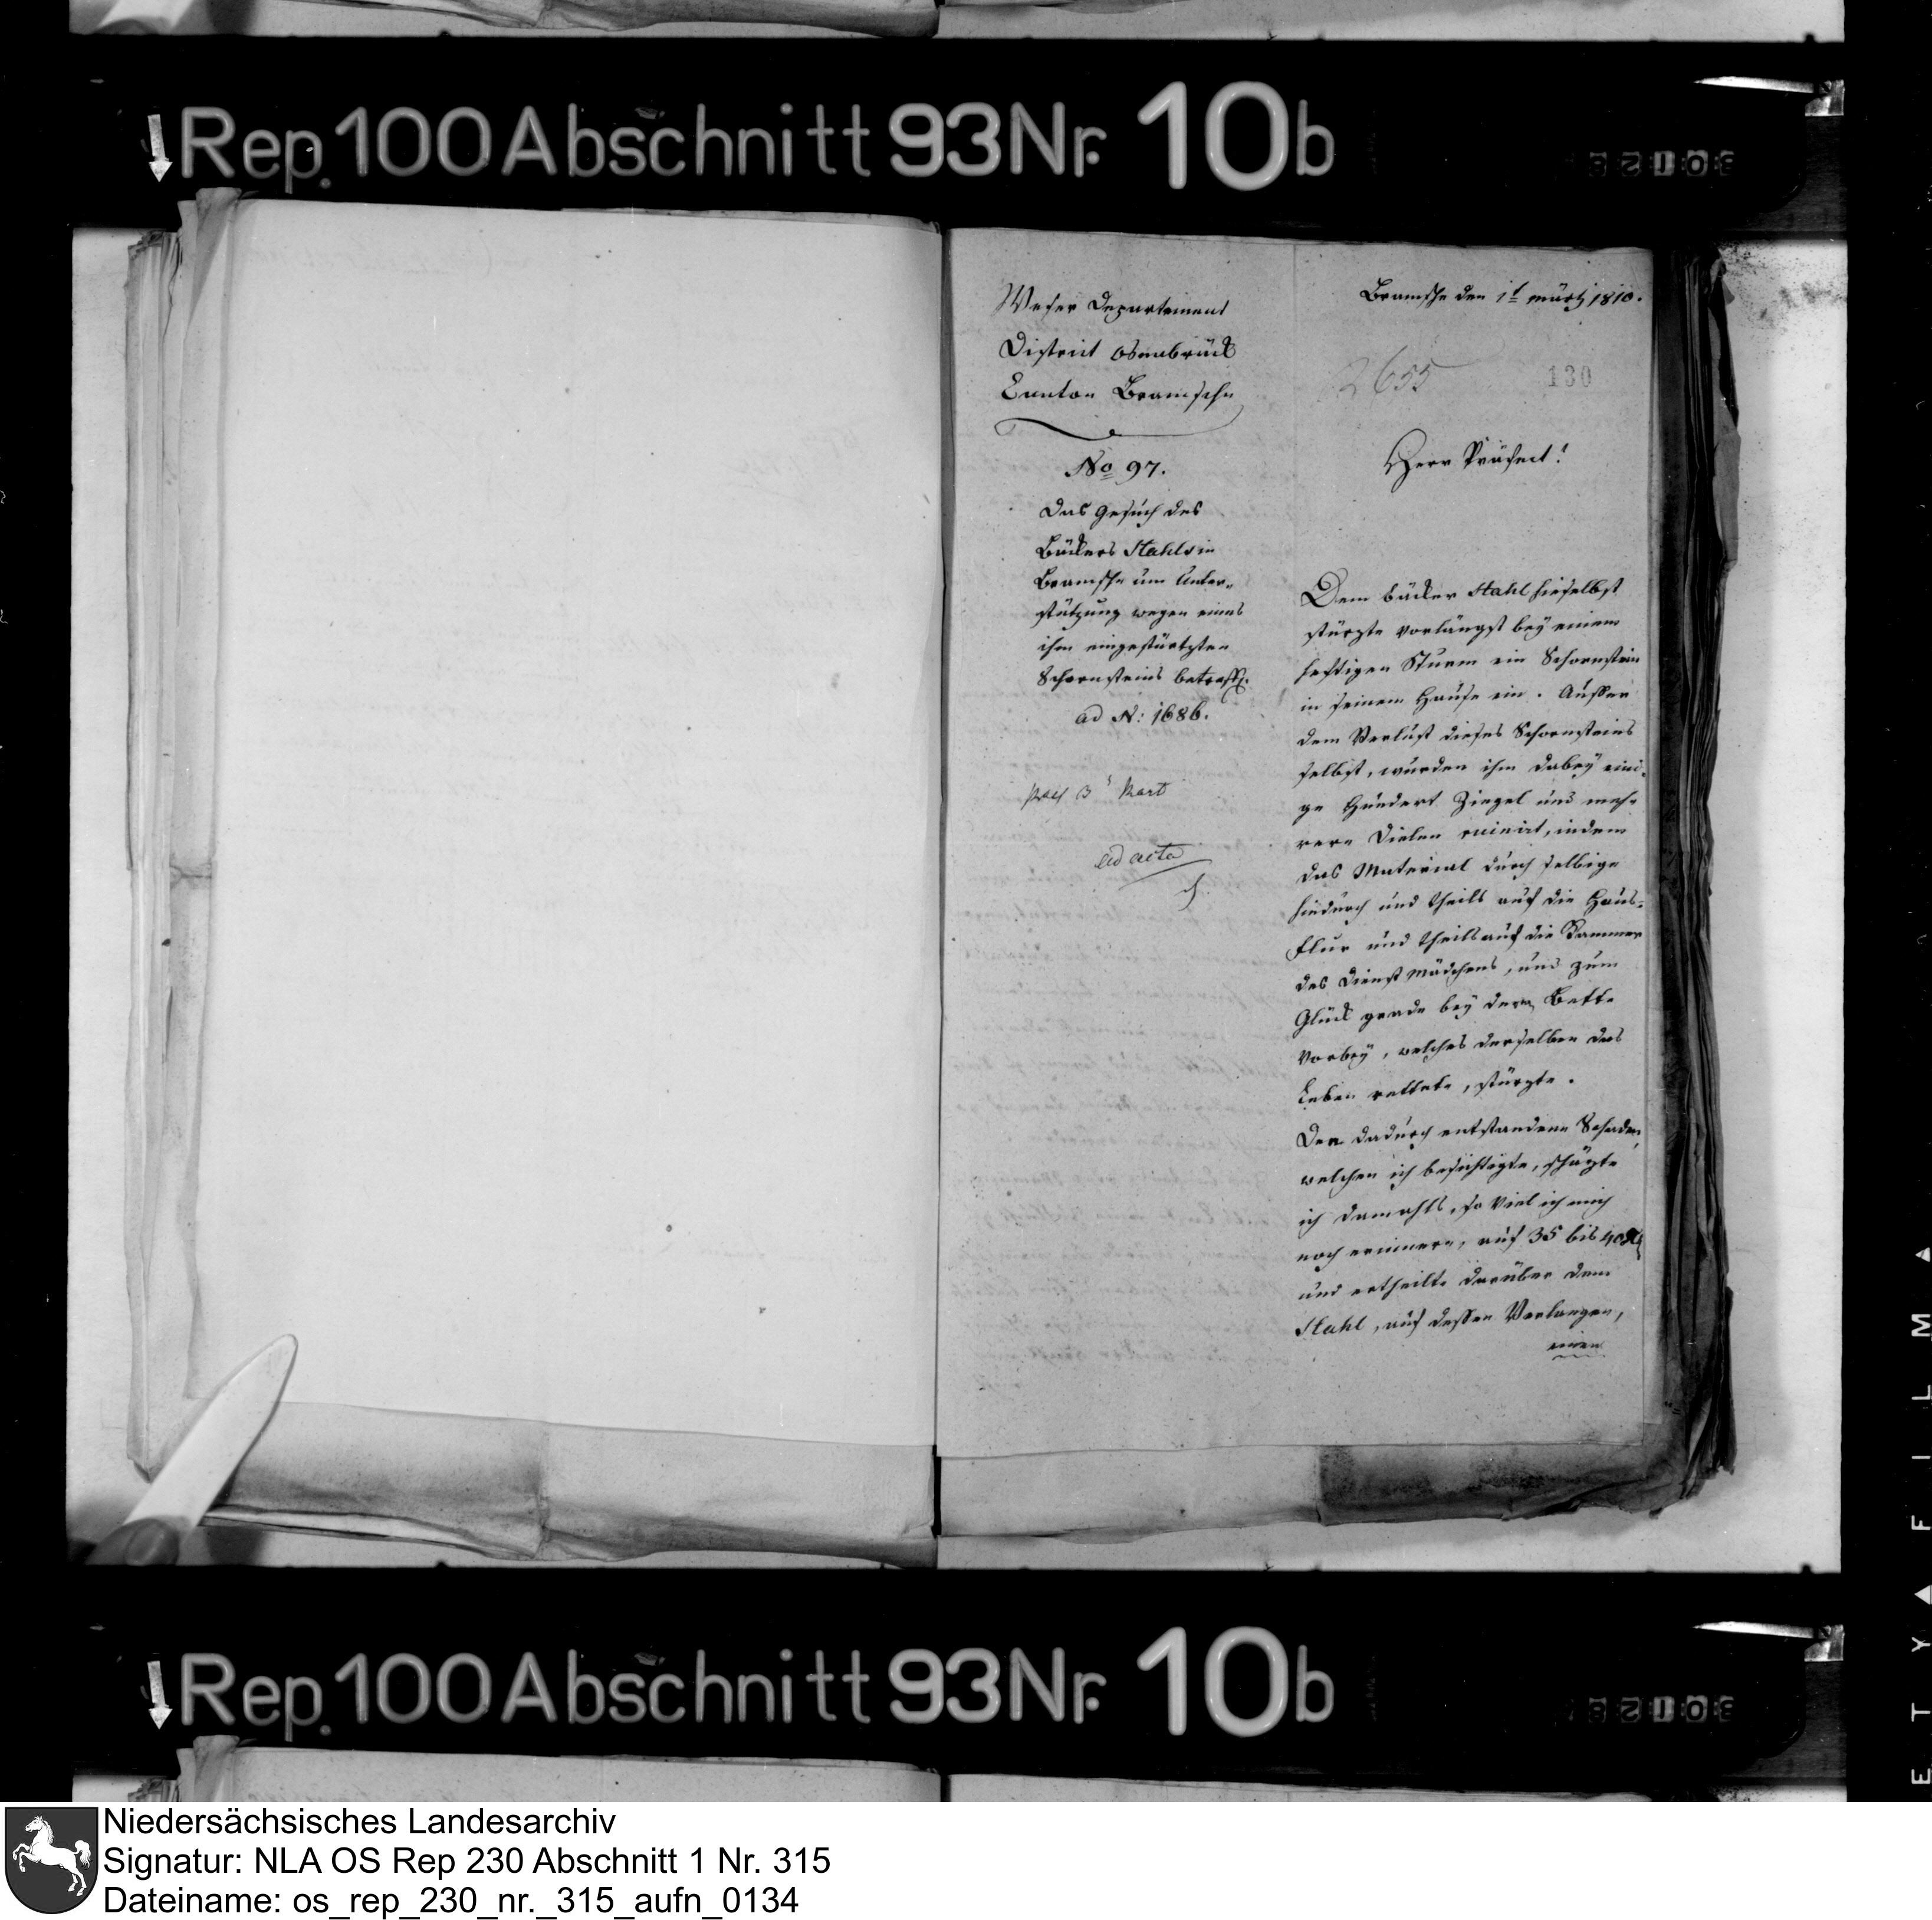 Rep. 100 Abschnitt 93 Nr. 10b
Weser Departement
District Osnabrück
Canton Bramsche
No 97.
Das Gesuch des
Bäckers Stahls in
Bramsche um Unter-
stützung wegen eines
ihm eingestürtzten
Schornsteins betreff.
ad N: 1686.
ad acta
Bramsche den 1t März 1810.
2655
130
Herr Präfect!
Dem Bäcker Stahl hieselbst
stürzte vorlängst bey einem
heftigen Sturm ein Schornstein
in seinem Hause ein. Ausser
dem Verlust dieses Schornsteins
selbst, wurden ihm dabey eini-
ge Hundert Ziegel und meh-
rere Dielen ruinirt, indem
das Material durch selbige
hindurch und theils auf die Haus-
flur und theils auf die Kammer
des Dienst Mädchens, und zum
Glück grade bey deren Bette
vorbey, welches derselben das
Leben rettete, stürzte.
Den dadurch entstandene Schaden,
welchen ich besichtigte, schäzte
ich damahls, so viel ich mich
noch erinnere, auf 35 bis 40 Rt
und ertheilte darüber dem
Stahl, auf dessen Verlangen,
einen
Rep. 100 Abschnitt 93 Nr. 10b
Niedersächsisches Landesarchiv
Signatur: NLA OS Rep 230 Abschnitt 1 Nr. 315
Dateiname: os_rep_230_nr._315_aufn_0134